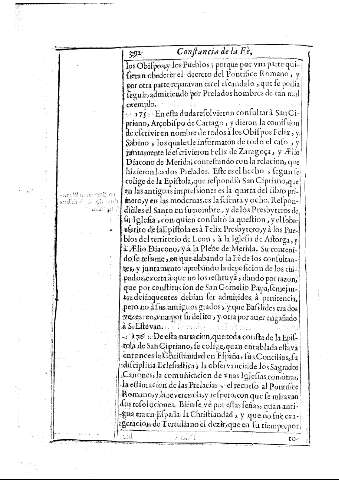 392 Constancia de la Fè,
los Obispos, y los Pueblos; porque por vna parte qui-
sieran obedecer el decreto del Pontifice Romano, y
por otra parte reparavan en el escandalo, que se podia
seguir, admitiendo por Prelados hombres de tan mal
exemplo.
175 En esta duda resolvieron consultar à San Ci-
priano, Arçobispo de Cartago, y dieron la comission
de escrivir en nombre de todos à los Obispos Felix, y
Sabino, los quales le informaron de todo el caso, y
juntamente le escrivieron Felix de Zaragoça, y Ælio
Diacono de Merida, contestando con la relacion, que
hizieron los dos Prelados. Este es el hecho, segun se
colige de la Epistola, que respondiò San Cipriano, que
en las antiguas impressiones es la quarta del libro pri-
mero, y en las modernas es la sesenta y ocho. Respon-
dioles el Santo en su nombre, y de los Presbyteros de
su Iglesia, con quien consultò la question, y el sobre-
escrito de su Epistola està à Felix Presbytero, y à los Pue-
blos del territorio de Leon, à la Iglesia de Astorga, y
à Ælio Diacono, y à la Plebe de Merida. Su conteni-
do se resume, en que alabando la Fè de los consultan-
tes, y juntamente aprobando la deposicion de los
que por constitucion de San Cornelio Papa, semejan-
tes delinquentes debian ser admitidos à penitencia,
pero no à sus antiguos grados, y que Basilides era dos
vezes reo, una por su delito, y otra por aver engañado
à S. Estevan.
176 De esta narracion, que toda consta de la Epis-
tola de San Cipriano, se colige, quan entablada estava
entonces la Christiandad en España, sus Concilios, su
disciplina Eclesiastica, la observancia de los Sagrados
Canones, la comunicacion de vnas Iglesias con otras,
la estimacion de las Prelacias, y el recurso al Pontifice
Romano, y la reverencia, y respeto, con que se miravan
sus resoluciones. Bien se vè por estas señas, quan anti-
gua era en España la Christiandad, y que no fue exa-
geracion de Tertuliano el dezir, que en su tiempo, por
to-